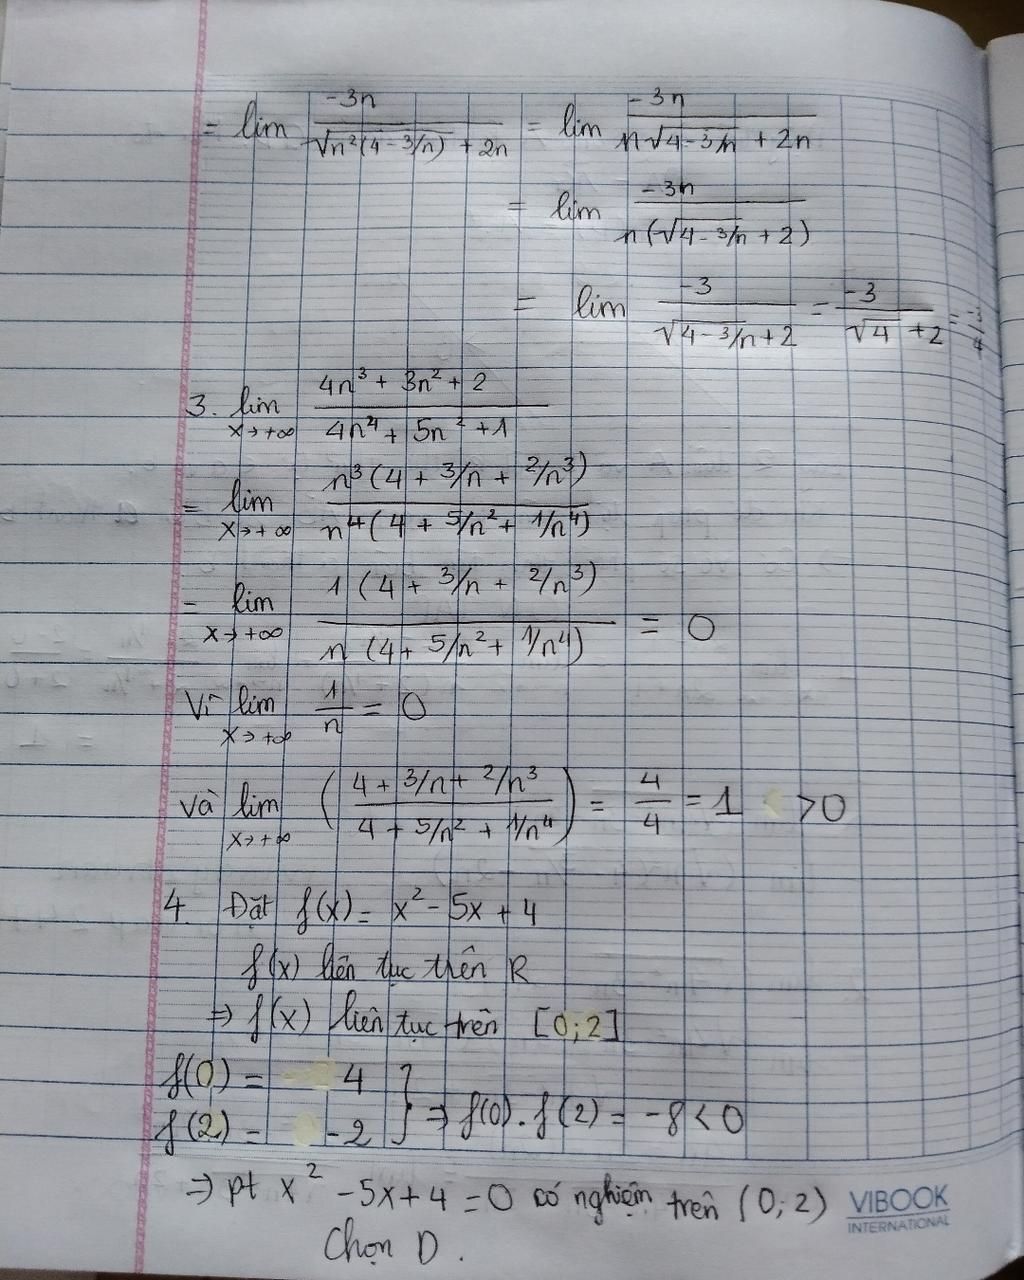 = lim -3n / (√n²(4 - 3/n) + 2n) = lim -3n / (n√4 - 3/n + 2n)
= lim -3n / (n(√4 - 3/n + 2))
= lim -3 / (√4 - 3/n + 2) = -3 / (√4 + 2) = -3/4
3. lim x→+∞ (4n³ + 3n² + 2) / (4n⁴ + 5n² + 1)
= lim x→+∞ n³(4 + 3/n + 2/n³) / n⁴(4 + 5/n² + 1/n⁴)
= lim x→+∞ 1(4 + 3/n + 2/n³) / n(4 + 5/n² + 1/n⁴) = 0
Vì lim x→+∞ 1/n = 0
và lim x→+∞ ((4 + 3/n + 2/n³) / (4 + 5/n² + 1/n⁴)) = 4/4 = 1 > 0
4. Đặt f(x) = x² - 5x + 4
f(x) liên tục trên R
⇒ f(x) liên tục trên [0;2]
f(0) = 4
f(2) = -2 } ⇒ f(0).f(2) = -8 < 0
⇒ pt x² - 5x + 4 = 0 có nghiệm trên (0;2)
Chọn D.
VIBOOK
INTERNATIONAL